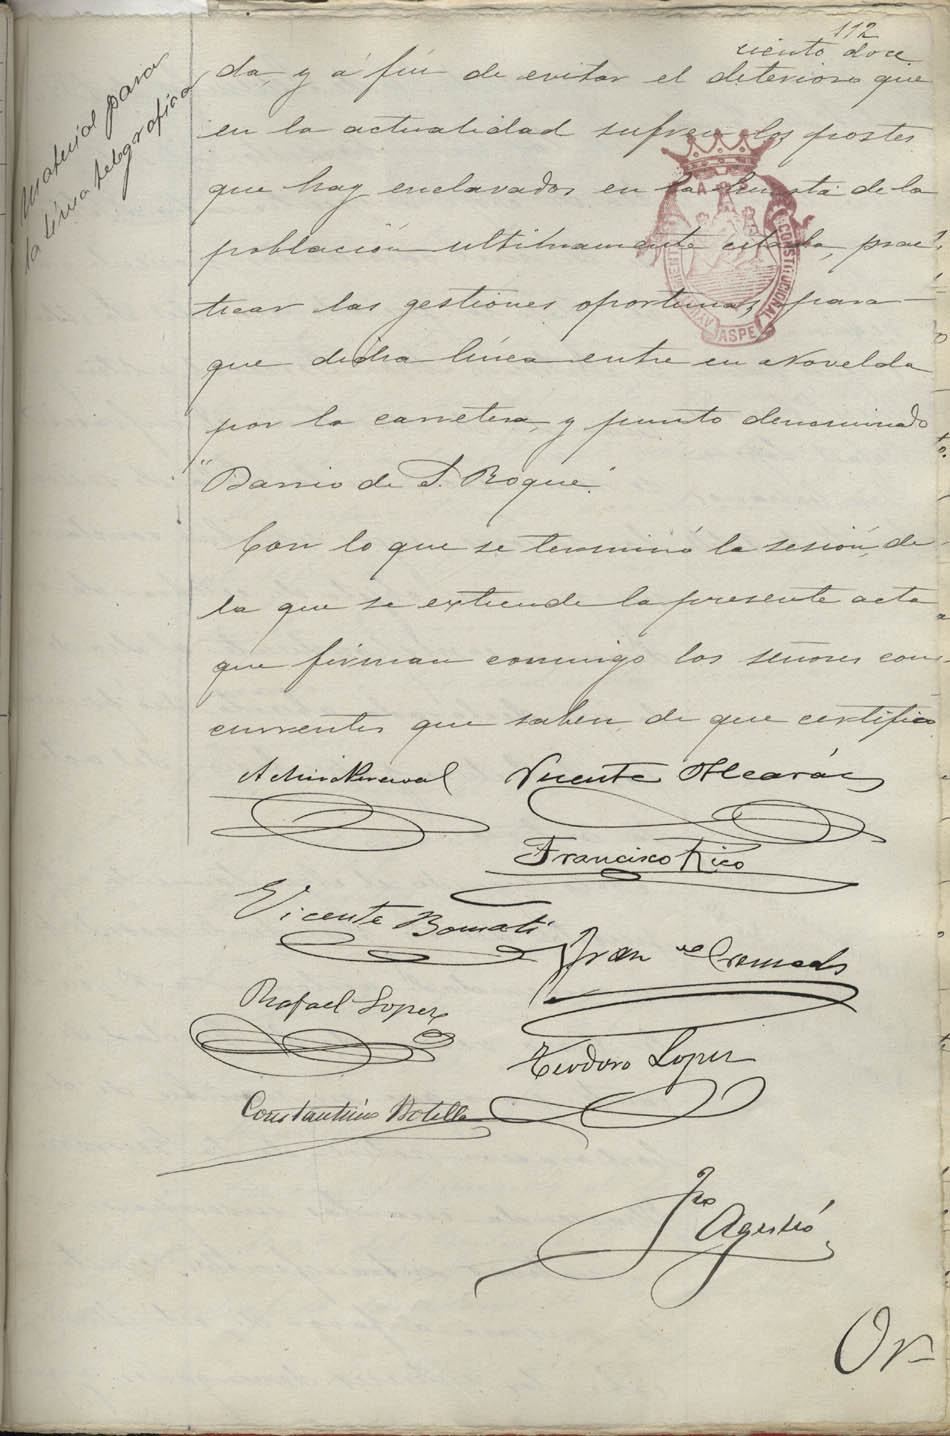 112
ciento doce
Material para
la línea telegráfica
da, y á fin de evitar el deterioro que
en la actualidad sufren los postes
que hay enclavados en la huerta de la
población ultimamente citada, prac-
ticar las gestiones oportunas, para
que dicha línea entre en Novelda
por la carretera, y punto denominado
"Barrio de S. Roque".
Con lo que se terminó la sesión, de
la que se extiende la presente acta
que firman conmigo los señores con-
currentes que saben, de que certifico
AYUNTAMIENTO CONSTITUCIONAL
ASPE
Vicente Alcaráz
Francisco Rico
Vicente Bonmatí
Rafael Lopez
Teodoro Lopez
Constantino Botella
Or-